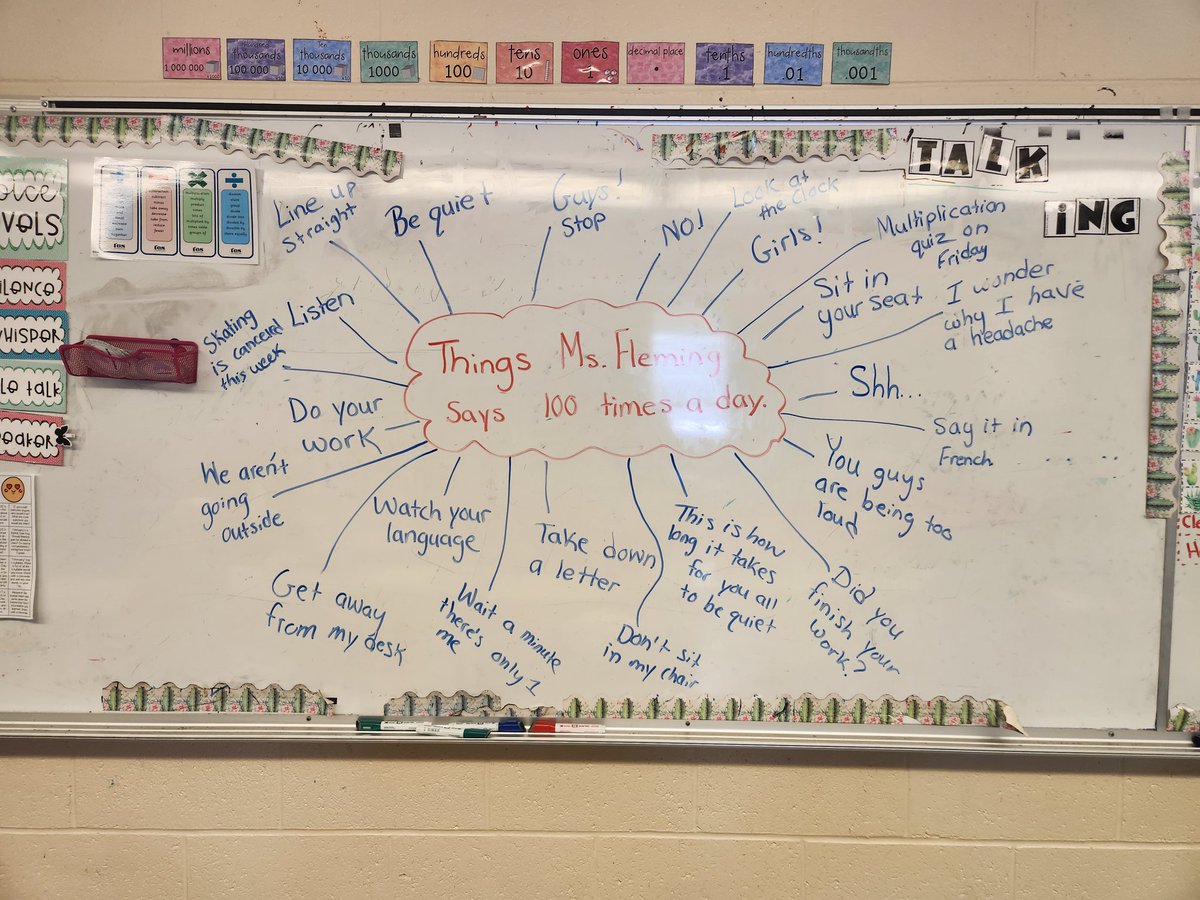 millions
1 000 000
hundred
thousands
100 000
ten
thousands
10 000
thousands
1000
hundreds
100
tens
10
ones
1
decimal place
.
tenths
.1
hundredths
.01
thousandths
.001
TALK
iNG
Line up
straight
Be quiet
Guys!
Stop
NO!
Look at
the clock
Girls!
Multiplication
quiz on
Friday
Sit in
your seat
I wonder
why I have
a headache
Shh...
Say it in
French
You guys
are being too
loud
Did you
finish your
work?
This is how
long it takes
for you all
to be quiet
Don't sit
in my chair
Take down
a letter
Wait a minute
there's only 1
me
Watch your
language
Get away
from my desk
We aren't
going
outside
Do your
work
Skating
is canceled
this week
Listen
Things Ms. Fleming
says 100 times a day.